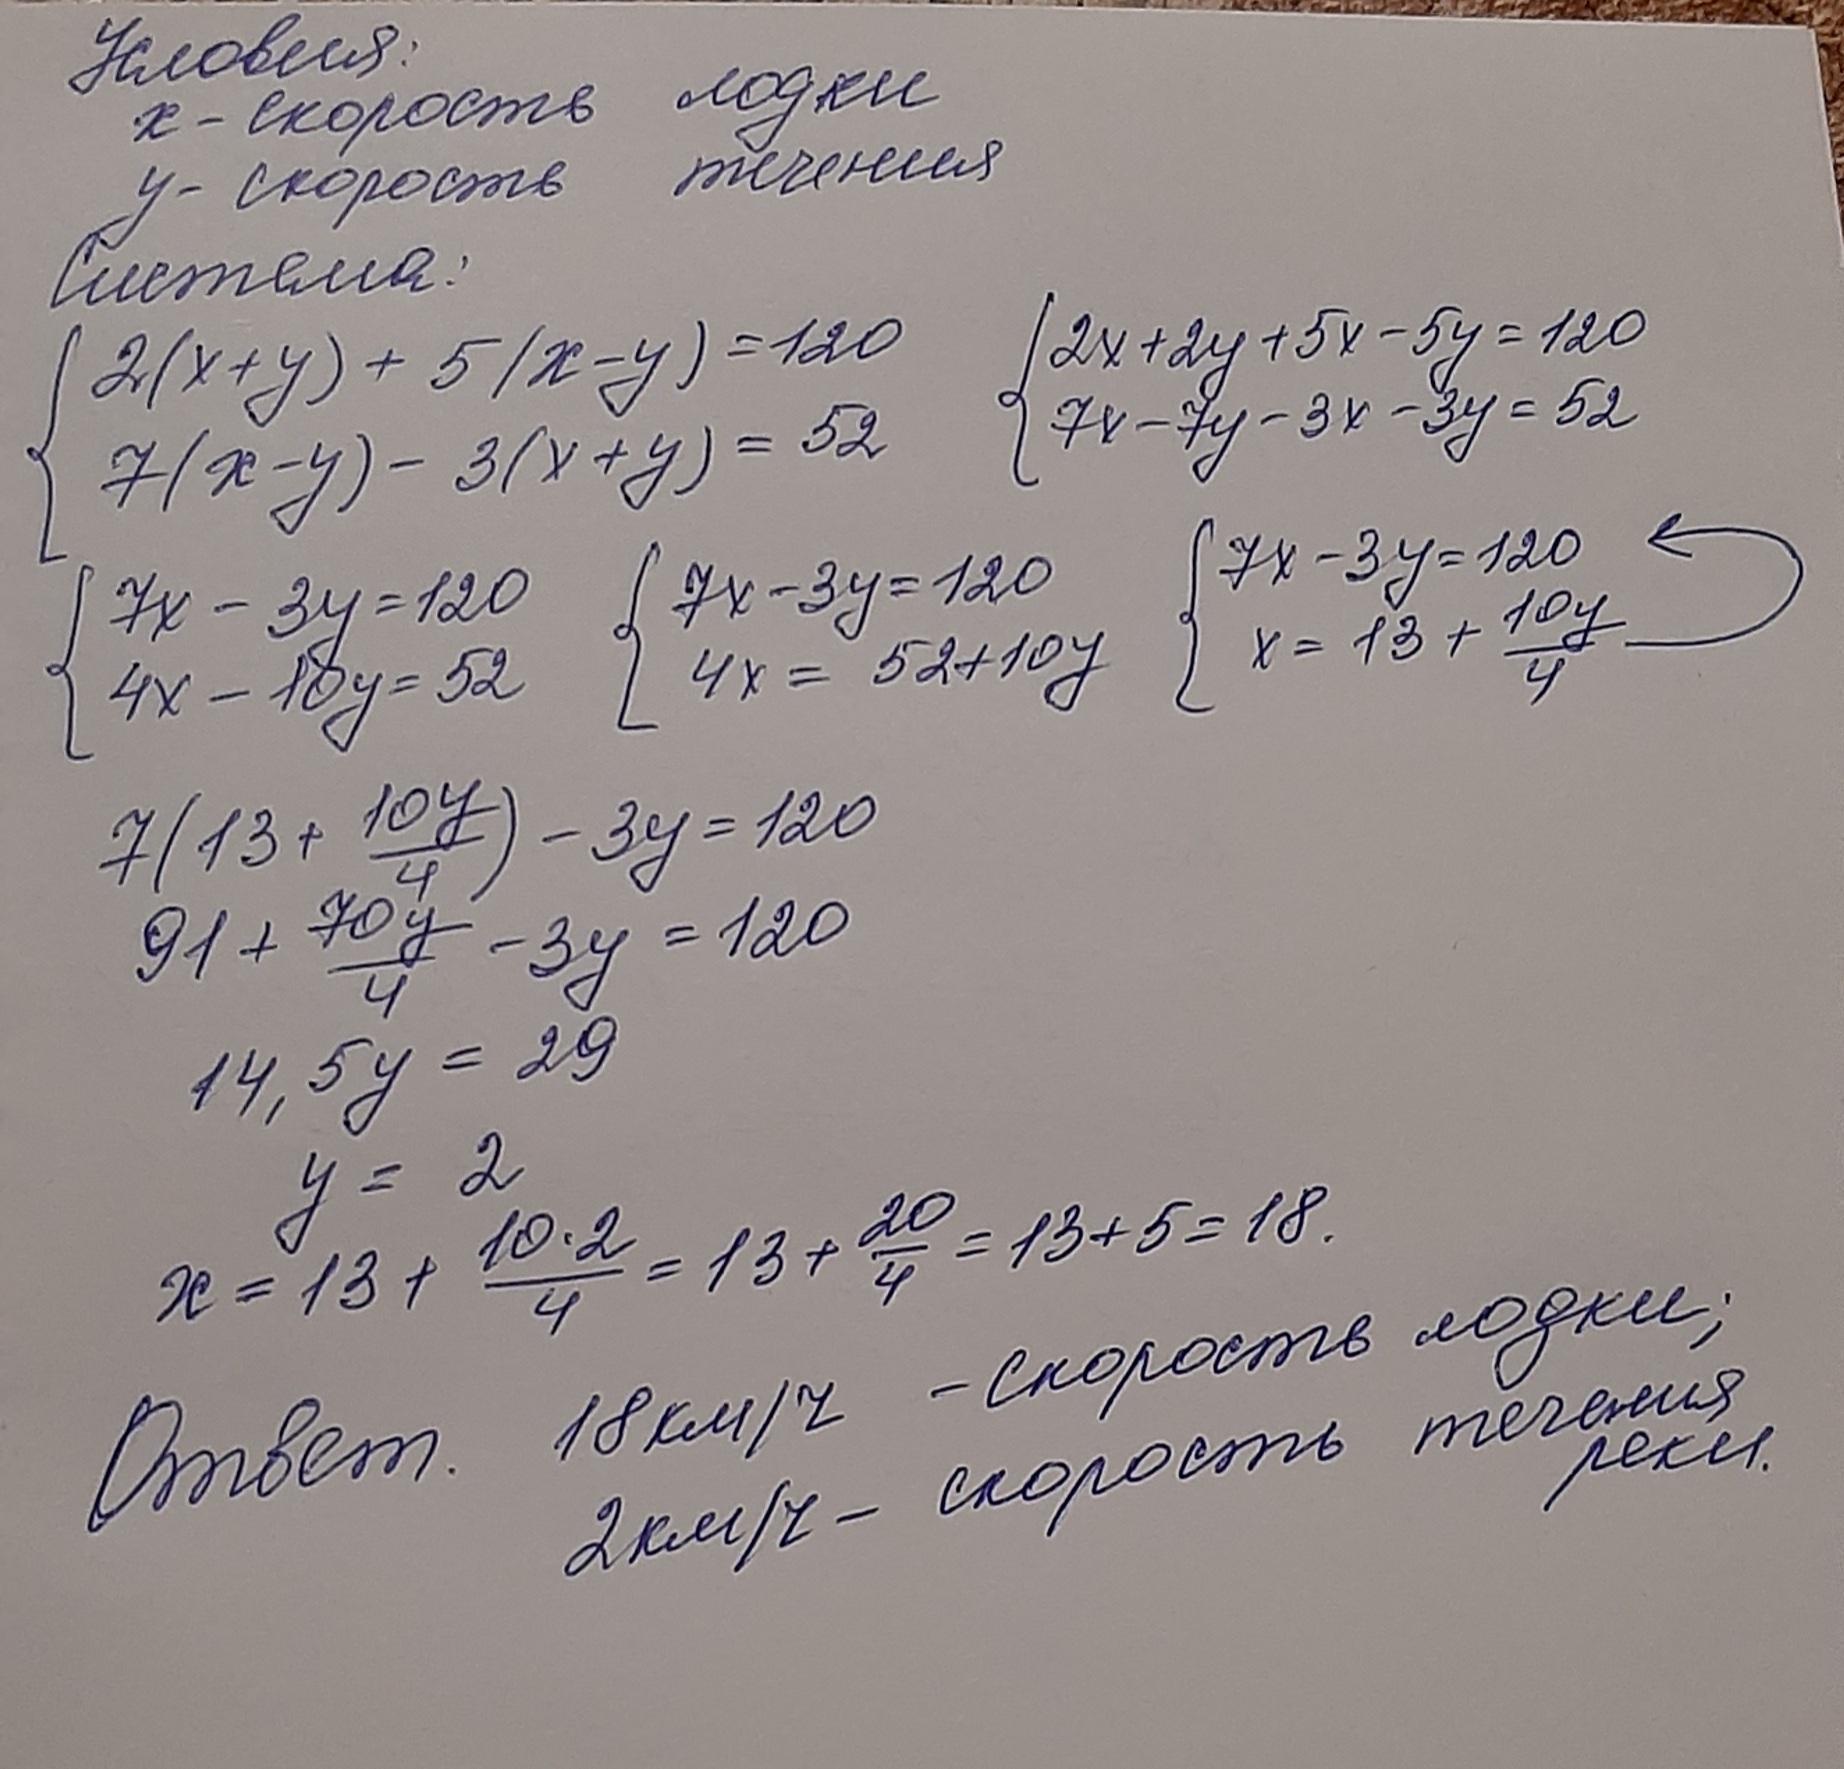 Условия:
x - скорость лодки
y - скорость течения
Система:
{ 2(x+y) + 5(x-y) = 120
7(x-y) - 3(x+y) = 52
{ 2x+2y+5x-5y=120
7x-7y-3x-3y=52
{ 7x - 3y = 120
4x - 10y = 52
{ 7x - 3y = 120
4x = 52+10y
{ 7x - 3y = 120
x = 13 + 10y/4
7(13 + 10y/4) - 3y = 120
91 + 70y/4 - 3y = 120
14,5y = 29
y = 2
x = 13 + 10·2/4 = 13 + 20/4 = 13+5 = 18.
Ответ. 18км/ч - скорость лодки;
2км/ч - скорость течения
реки.